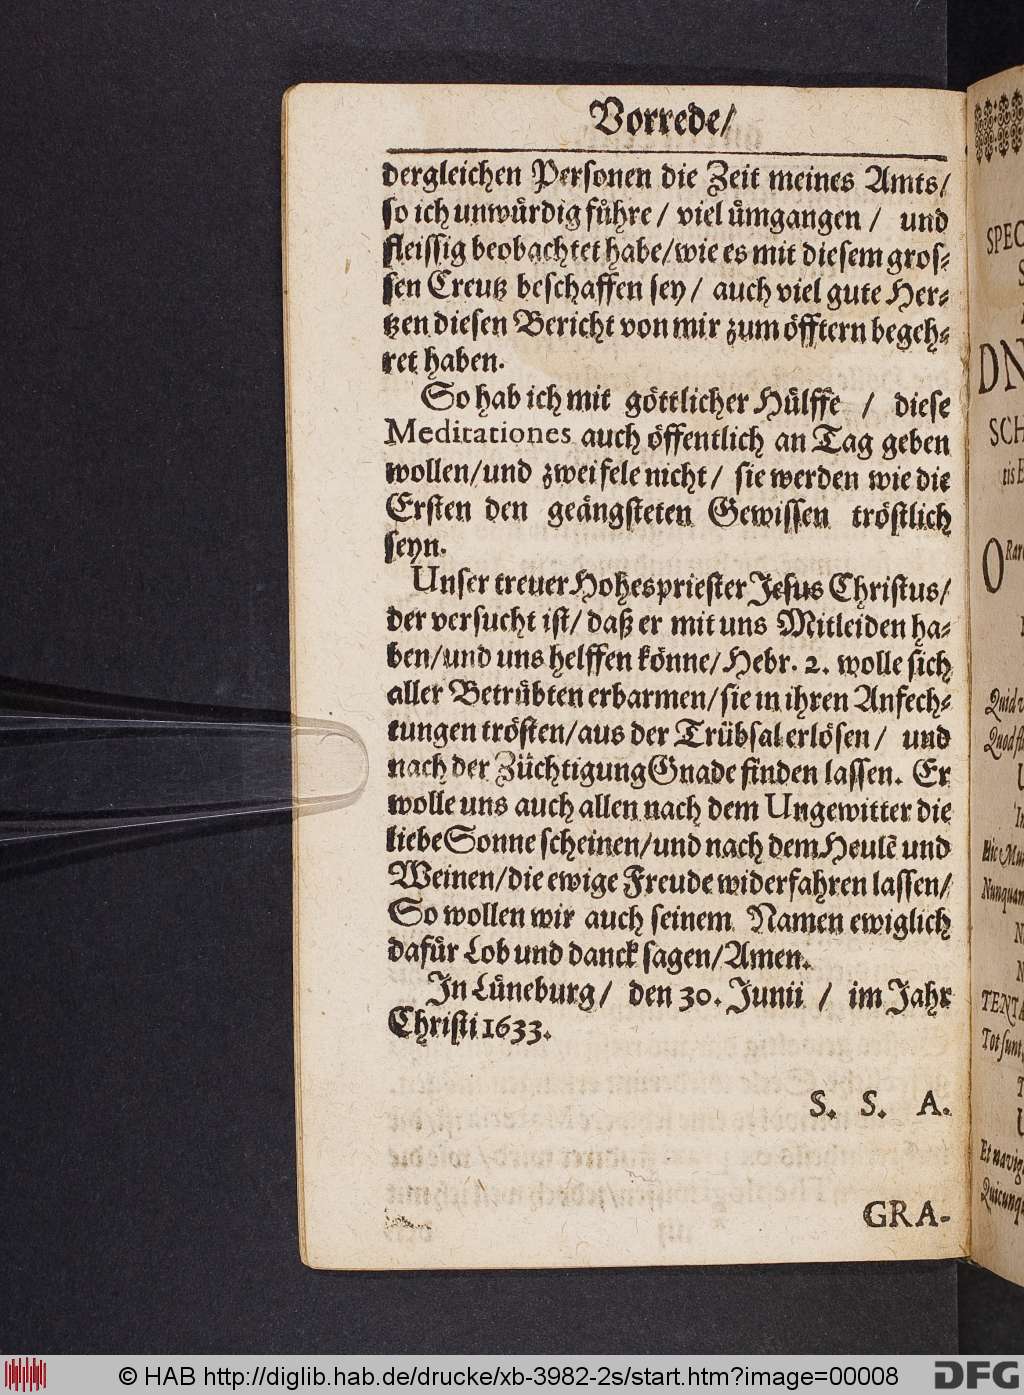 Vorrede/
dergleichen Personen die Zeit meines Amts/
so ich unwürdig führe / viel ümgangen / und
fleissig beobachtet habe/wie es mit diesem gros-
sen Creutz beschaffen sey / auch viel gute Her-
tzen diesen Bericht von mir zum öfftern begeh-
ret haben.
So hab ich mit göttlicher Hülffe / diese
Meditationes auch öffentlich an Tag geben
wollen/und zweifele nicht / sie werden wie die
Ersten den geängsteten Gewissen tröstlich
seyn.
Unser treuer Hohespriester Jesus Christus/
der versucht ist/ daß er mit uns Mitleiden ha-
ben/und uns helffen könne/Hebr. 2. wolle sich
aller Betrübten erbarmen/sie in ihren Anfech-
tungen trösten/aus der Trübsal erlösen / und
nach der Züchtigung Gnade finden lassen. Er
wolle uns auch allen nach dem Ungewitter die
liebe Sonne scheinen/und nach dem Heulē und
Weinen/die ewige Freude widerfahren lassen/
So wollen wir auch seinem Namen ewiglich
dafür Lob und danck sagen/Amen.
In Lüneburg / den 30. Junii / im Jahr
Christi 1633.
S. S. A.
GRA-
SPEC
DN
SCH
tis
ORar
Quid
Quod
Hic Mu
Nunquam
TENTA
Tot sunt
Et navig
Quicunqu
© HAB http://diglib.hab.de/drucke/xb-3982-2s/start.htm?image=00008
DFG